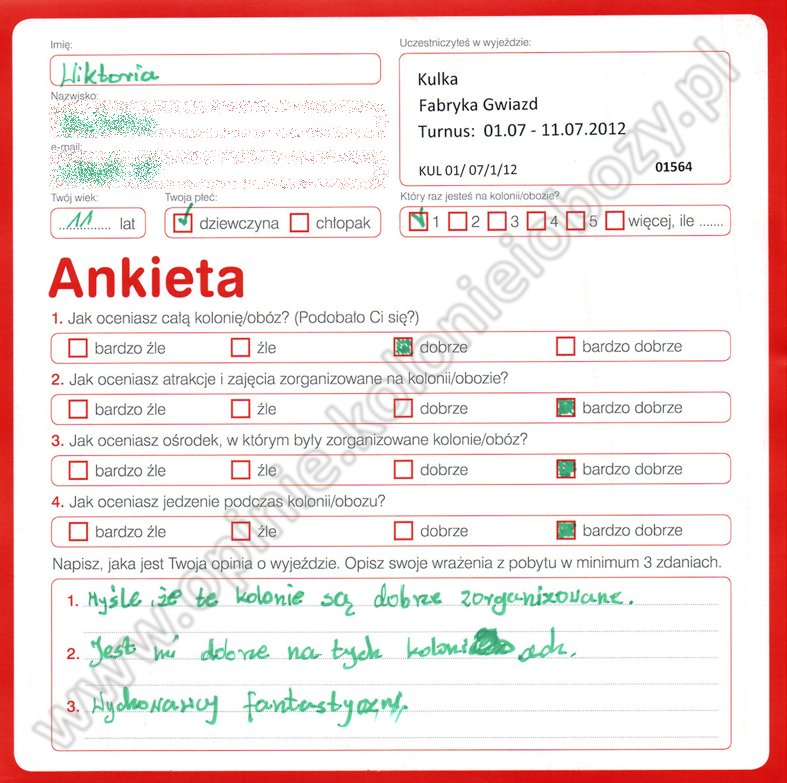 Imię:
Wiktoria
Nazwisko:
e-mail:
Twój wiek:
11 lat
Twoja płeć:
dziewczyna chłopak
Uczestniczyłeś w wyjeździe:
Kulka
Fabryka Gwiazd
Turnus: 01.07 - 11.07.2012
KUL 01/ 07/1/12 01564
Który raz jesteś na kolonii/obozie?
1 2 3 4 5 więcej, ile .......
Ankieta
1. Jak oceniasz całą kolonię/obóz? (Podobało Ci się?)
bardzo źle źle dobrze bardzo dobrze
2. Jak oceniasz atrakcje i zajęcia zorganizowane na kolonii/obozie?
bardzo źle źle dobrze bardzo dobrze
3. Jak oceniasz ośrodek, w którym były zorganizowane kolonie/obóz?
bardzo źle źle dobrze bardzo dobrze
4. Jak oceniasz jedzenie podczas kolonii/obozu?
bardzo źle źle dobrze bardzo dobrze
Napisz, jaka jest Twoja opinia o wyjeździe. Opisz swoje wrażenia z pobytu w minimum 3 zdaniach.
1. Myśle że te kolonie są dobrze zorganizowane.
2. Jest mi dobrze na tych koloni ach.
3. Wychowawcy fantastyczni.
www.opinie.kolonieiobozy.pl